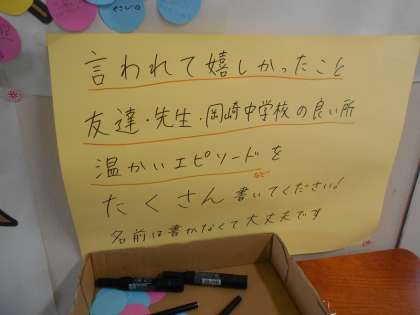 言われて嬉しかったこと
友達・先生・岡崎中学校の良い所
温かいエピソードを
など
たくさん書いてください!
名前は書かなくて大丈夫です